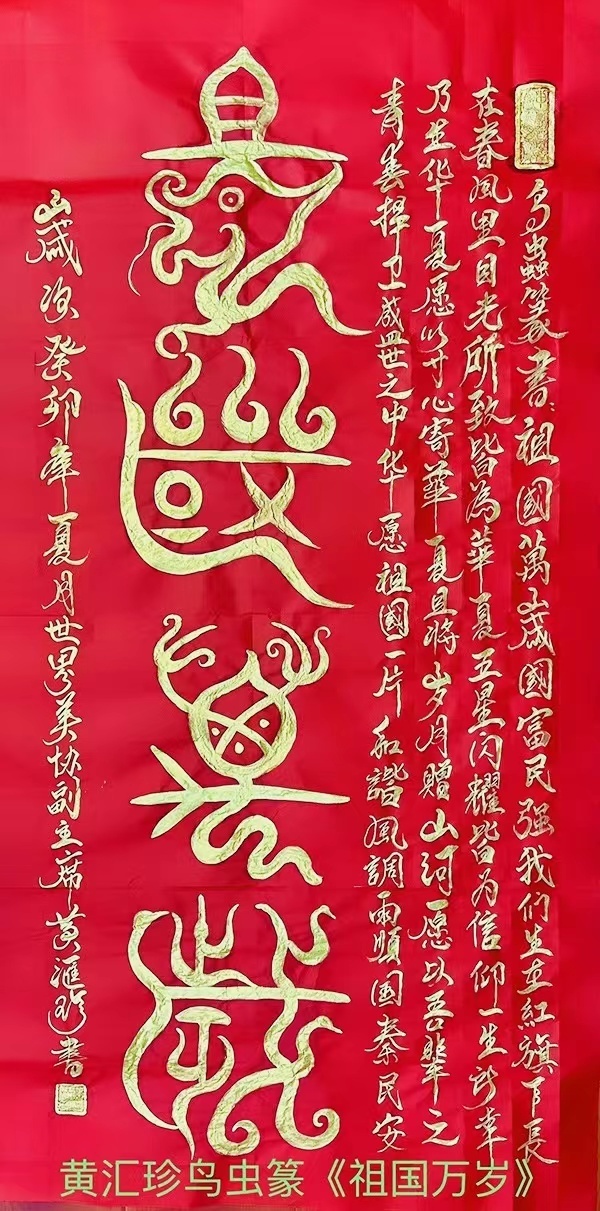 鸟蟲篆書:祖國萬歲國富民强我们生在紅旗下長
在春风里目光所致皆為華夏五星闪耀皆为信仰一生所幸
乃生华夏愿以寸心寄華夏且将岁月赠山河愿以吾辈之
青春捍卫盛世之中华愿祖國一片和諧風調雨順国泰民安
祖國萬歲
歲次癸卯年夏月世界美协副主席黄滙珍書
黄汇珍鸟虫篆《祖国万岁》